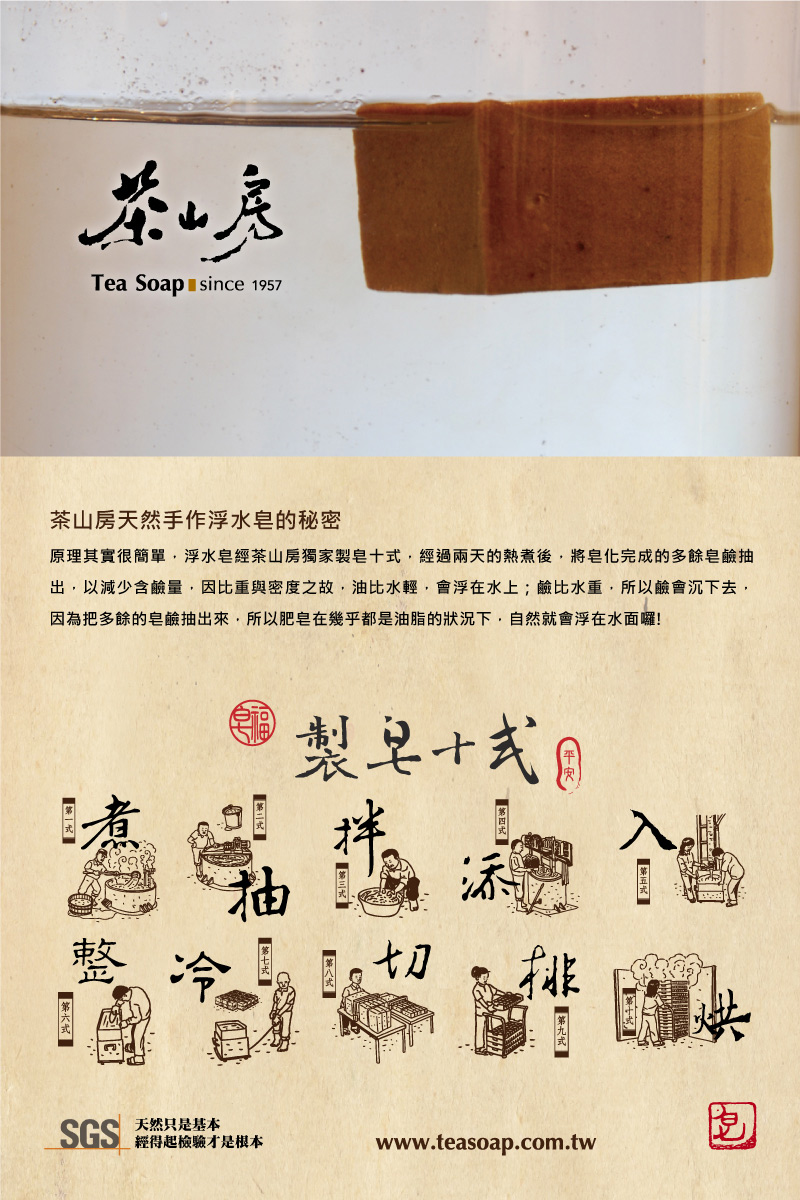 茶山房
Tea Soap since 1957
茶山房天然手作浮水皂的秘密
原理其實很簡單，浮水皂經茶山房獨家製皂十式，經過兩天的熱煮後，將皂化完成的多餘皂鹼抽
出，以減少含鹼量，因比重與密度之故，油比水輕，會浮在水上；鹼比水重，所以鹼會沉下去，
因為把多餘的皂鹼抽出來，所以肥皂在幾乎都是油脂的狀況下，自然就會浮在水面囉!
皂福
製皂十式
平安
第一式 煮
第二式 抽
第三式 拌
第四式 添
第五式 入
第六式 整
第七式 冷
第八式 切
第九式 排
第十式 烘
SGS
天然只是基本
經得起檢驗才是根本
www.teasoap.com.tw
皂